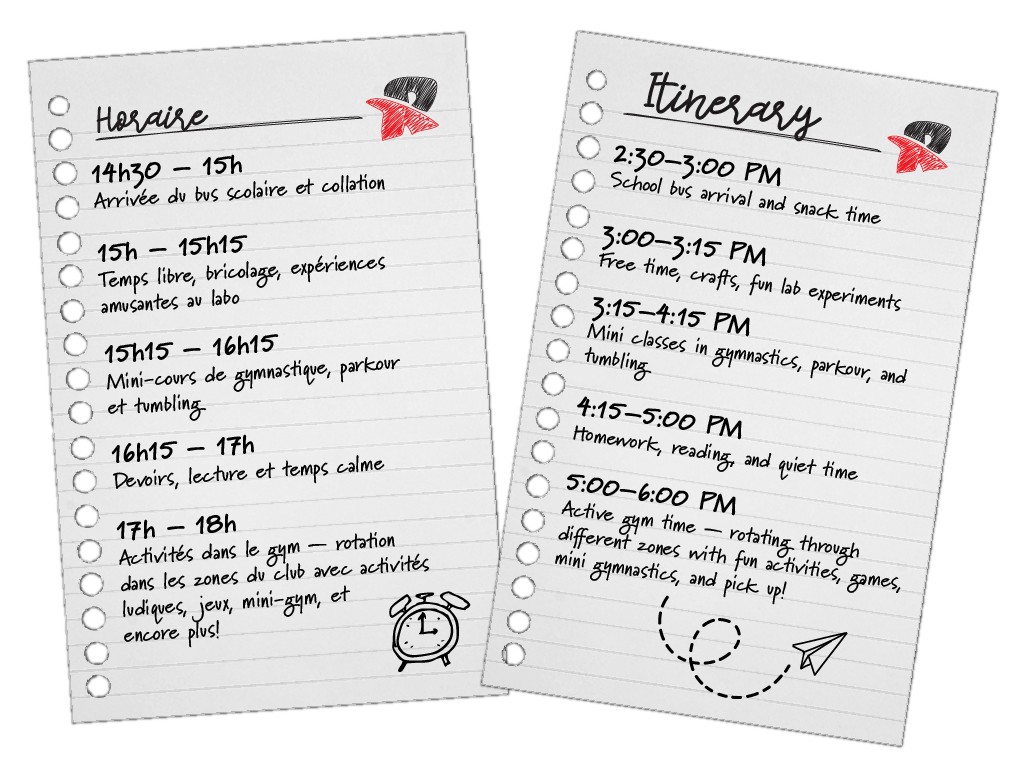 Horaire
14h30 – 15h
Arrivée du bus scolaire et collation
15h – 15h15
Temps libre, bricolage, expériences
amusantes au labo
15h15 – 16h15
Mini-cours de gymnastique, parkour
et tumbling
16h15 – 17h
Devoirs, lecture et temps calme
17h – 18h
Activités dans le gym – rotation
dans les zones du club avec activités
ludiques, jeux, mini-gym, et
encore plus!
Itinerary
2:30–3:00 PM
School bus arrival and snack time
3:00–3:15 PM
Free time, crafts, fun lab experiments
3:15–4:15 PM
Mini classes in gymnastics, parkour, and
tumbling
4:15–5:00 PM
Homework, reading, and quiet time
5:00–6:00 PM
Active gym time – rotating through
different zones with fun activities, games,
mini gymnastics, and pick up!